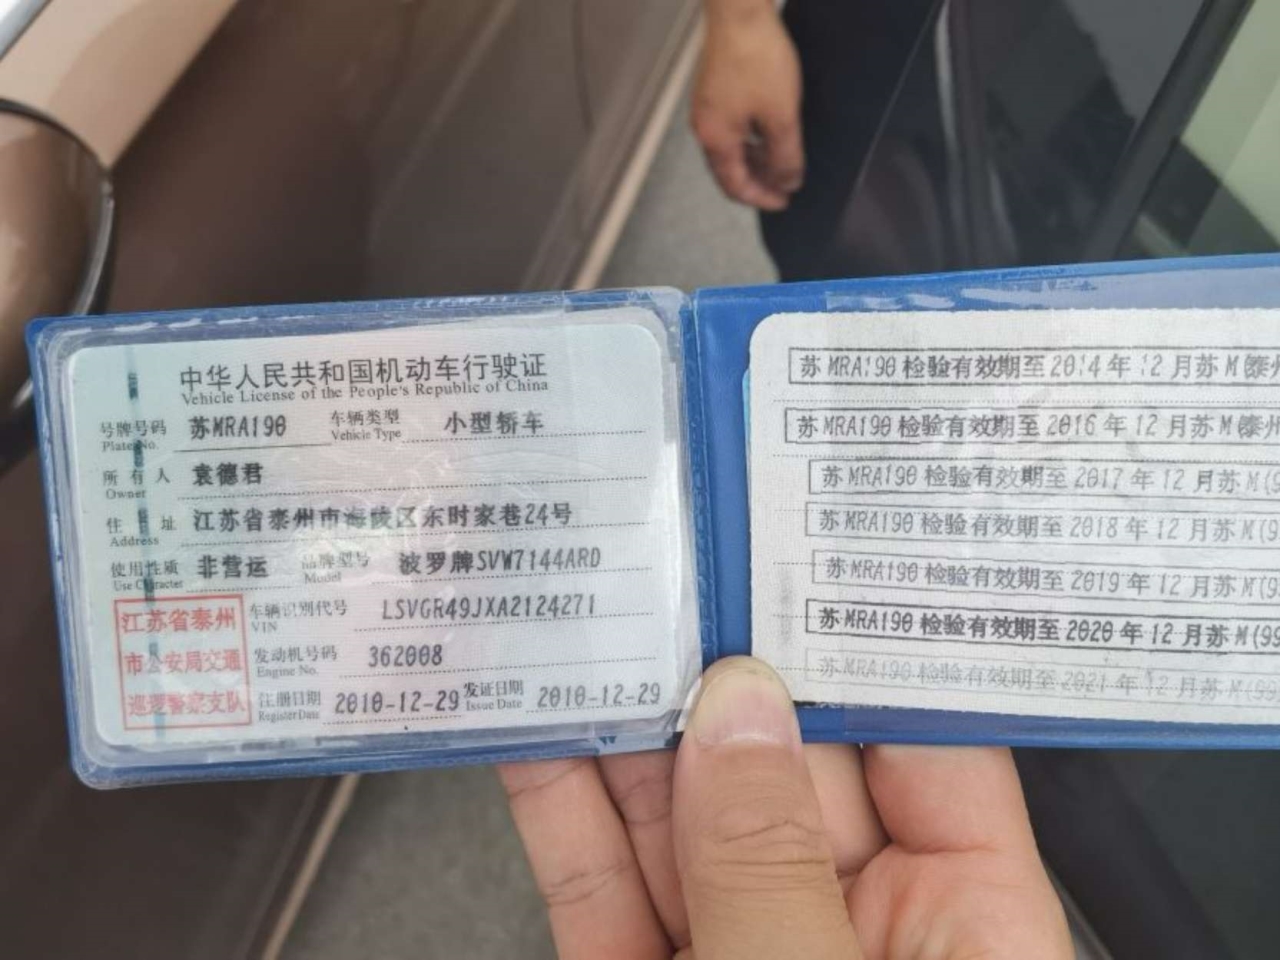 中华人民共和国机动车行驶证
Vehicle License of the People's Republic of China
号牌号码 苏MRA190 车辆类型 小型轿车
Plate No. Vehicle Type
所有人 袁德君
Owner
住址 江苏省泰州市海陵区东时家巷24号
Address
使用性质 非营运 品牌型号 波罗牌SVW7144ARD
Use Character Model
江苏省泰州
市公安局交通
巡逻警察支队
车辆识别代号 LSVGR49JXA2124271
VIN
发动机号码 362008
Engine No.
注册日期 2010-12-29 发证日期 2010-12-29
Register Date Issue Date
苏MRA190检验有效期至2014年12月苏M(泰州
苏MRA190检验有效期至2016年12月苏M(泰州
苏MRA190检验有效期至2017年12月苏M(9
苏MRA190检验有效期至2018年12月苏M(9
苏MRA190检验有效期至2019年12月苏M(9
苏MRA190检验有效期至2020年12月苏M(99
苏MRA190检验有效期至2021年12月苏M(99